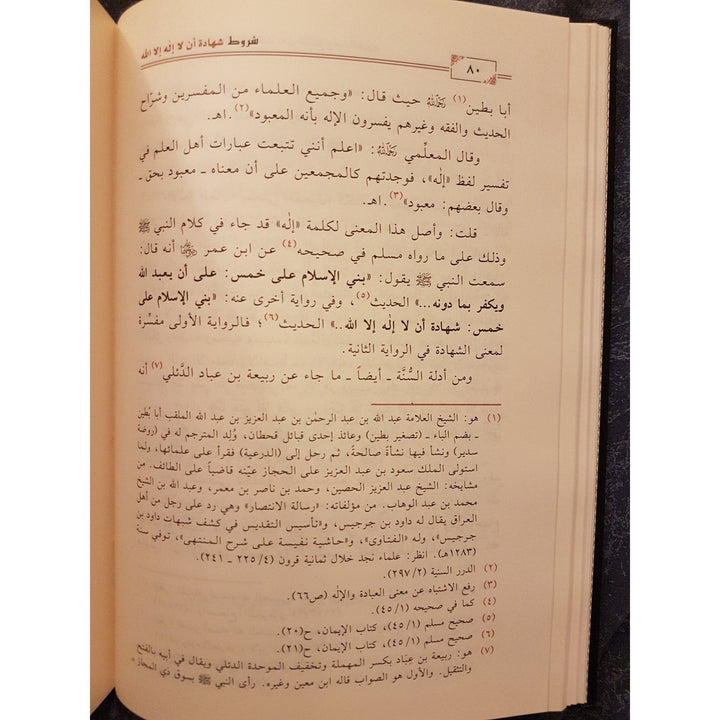 شروط شهادة أن لا إله إلا الله
٨٠
أبا بطين(١) رَحِمَهُ اللهُ حيث قال: «وجميع العلماء من المفسرين وشرّاح
الحديث والفقه وغيرهم يفسرون الإله بأنه المعبود»(٢).اهـ.
وقال المعلِّمي رَحِمَهُ اللهُ: «اعلم أنني تتبعت عبارات أهل العلم في
تفسير لفظ «إله»، فوجدتهم كالمجمعين على أن معناه ـ معبود بحق ـ
وقال بعضهم: معبود»(٣).اهـ.
قلت: وأصل هذا المعنى لكلمة «إله» قد جاء في كلام النبي ﷺ
وذلك على ما رواه مسلم في صحيحه(٤) عن ابن عمر رضي الله عنهما أنه قال:
سمعت النبي ﷺ يقول: «بني الإسلام على خمس: على أن يعبد الله
ويكفر بما دونه...» الحديث(٥)، وفي رواية أخرى عنه: «بني الإسلام على
خمس: شهادة أن لا إله إلا الله..» الحديث(٦)؛ فالرواية الأولى مفسِّرة
لمعنى الشهادة في الرواية الثانية.
ومن أدلة السُّنَّة ـ أيضاً ـ ما جاء عن ربيعة بن عباد الدَّئلي(٧) أنه
(١) هو: الشيخ العلامة عبد الله بن عبد الرحمٰن بن عبد العزيز بن عبد الله الملقب أبا بُطين
ـ بضم الباء ـ (تصغير بطين) وعائذ إحدى قبائل قحطان، وُلد المترجم له في (روضة
سدير) ونشأ فيها نشأةً صالحةً، ثم رحل إلى (الدرعية) فقرأ على علمائها، ولما
استولى الملك سعود بن عبد العزيز على الحجاز عيّنه قاضياً على الطائف. من
مشايخه: الشيخ عبد العزيز الحصين، وحمد بن ناصر بن معمر، وعبد الله بن الشيخ
محمد بن عبد الوهاب. من مؤلفاته: «رسالة الانتصار» وهي رد على رجل من أهل
العراق يقال له داود بن جرجيس، و«تأسيس التقديس في كشف شبهات داود بن
جرجيس، وله «الفتاوى»، و«حاشية نفيسة على شرح المنتهى»، توفي سنة
(١٢٨٣هـ). انظر: علماء نجد خلال ثمانية قرون (٤/ ٢٢٥ ـ ٢٤١).
(٢) الدرر السنية (٢/ ٢٩٧).
(٣) رفع الاشتباه عن معنى العبادة والإله (ص٦٦).
(٤) كما في صحيحه (١/ ٤٥).
(٥) صحيح مسلم (١/ ٤٥)، كتاب الإيمان، ح(٢٠).
(٦) صحيح مسلم (١/ ٤٥)، كتاب الإيمان، ح(٢١).
(٧) هو: ربيعة بن عِبَاد بكسر المهملة وتخفيف الموحدة الدئلي ويقال في أبيه بالفتح
والتثقيل. والأول هو الصواب قاله ابن معين وغيره. رأى النبي ﷺ بسوق ذي المجاز =